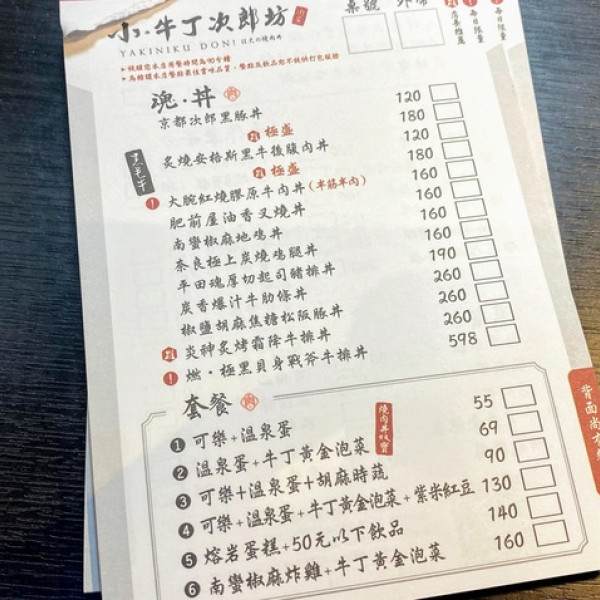 小牛丁次郎坊
桌號 外帶
YAKINIKU DON! 日式の燒肉丼
店長推薦
每日限量
魂·丼
京都次郎黑豚丼 120
極盛 180
炙燒安格斯黑牛後腹肉丼 120
極盛 180
大腕紅燒膠原牛肉丼(半筋半肉) 160
肥前屋油香叉燒丼 160
南蠻椒麻地鸡丼 160
奈良極上炭燒鸡腿丼 160
平田魂厚切起司豬排丼 190
炭香爆汁牛肋條丼 260
椒鹽胡麻焦糖松阪豚丼 260
炎神炙烤霜降牛排丼 260
燃·極黑貝身戰斧牛排丼 598
套餐
燒肉丼
1 可樂+溫泉蛋 55
2 溫泉蛋+牛丁黃金泡菜 69
3 可樂+溫泉蛋+胡麻時蔬 90
4 可樂+溫泉蛋+牛丁黃金泡菜+紫米紅豆 130
5 熔岩蛋糕+50元以下飲品 140
6 南蠻椒麻炸雞+牛丁黃金泡菜 160
背面尚有